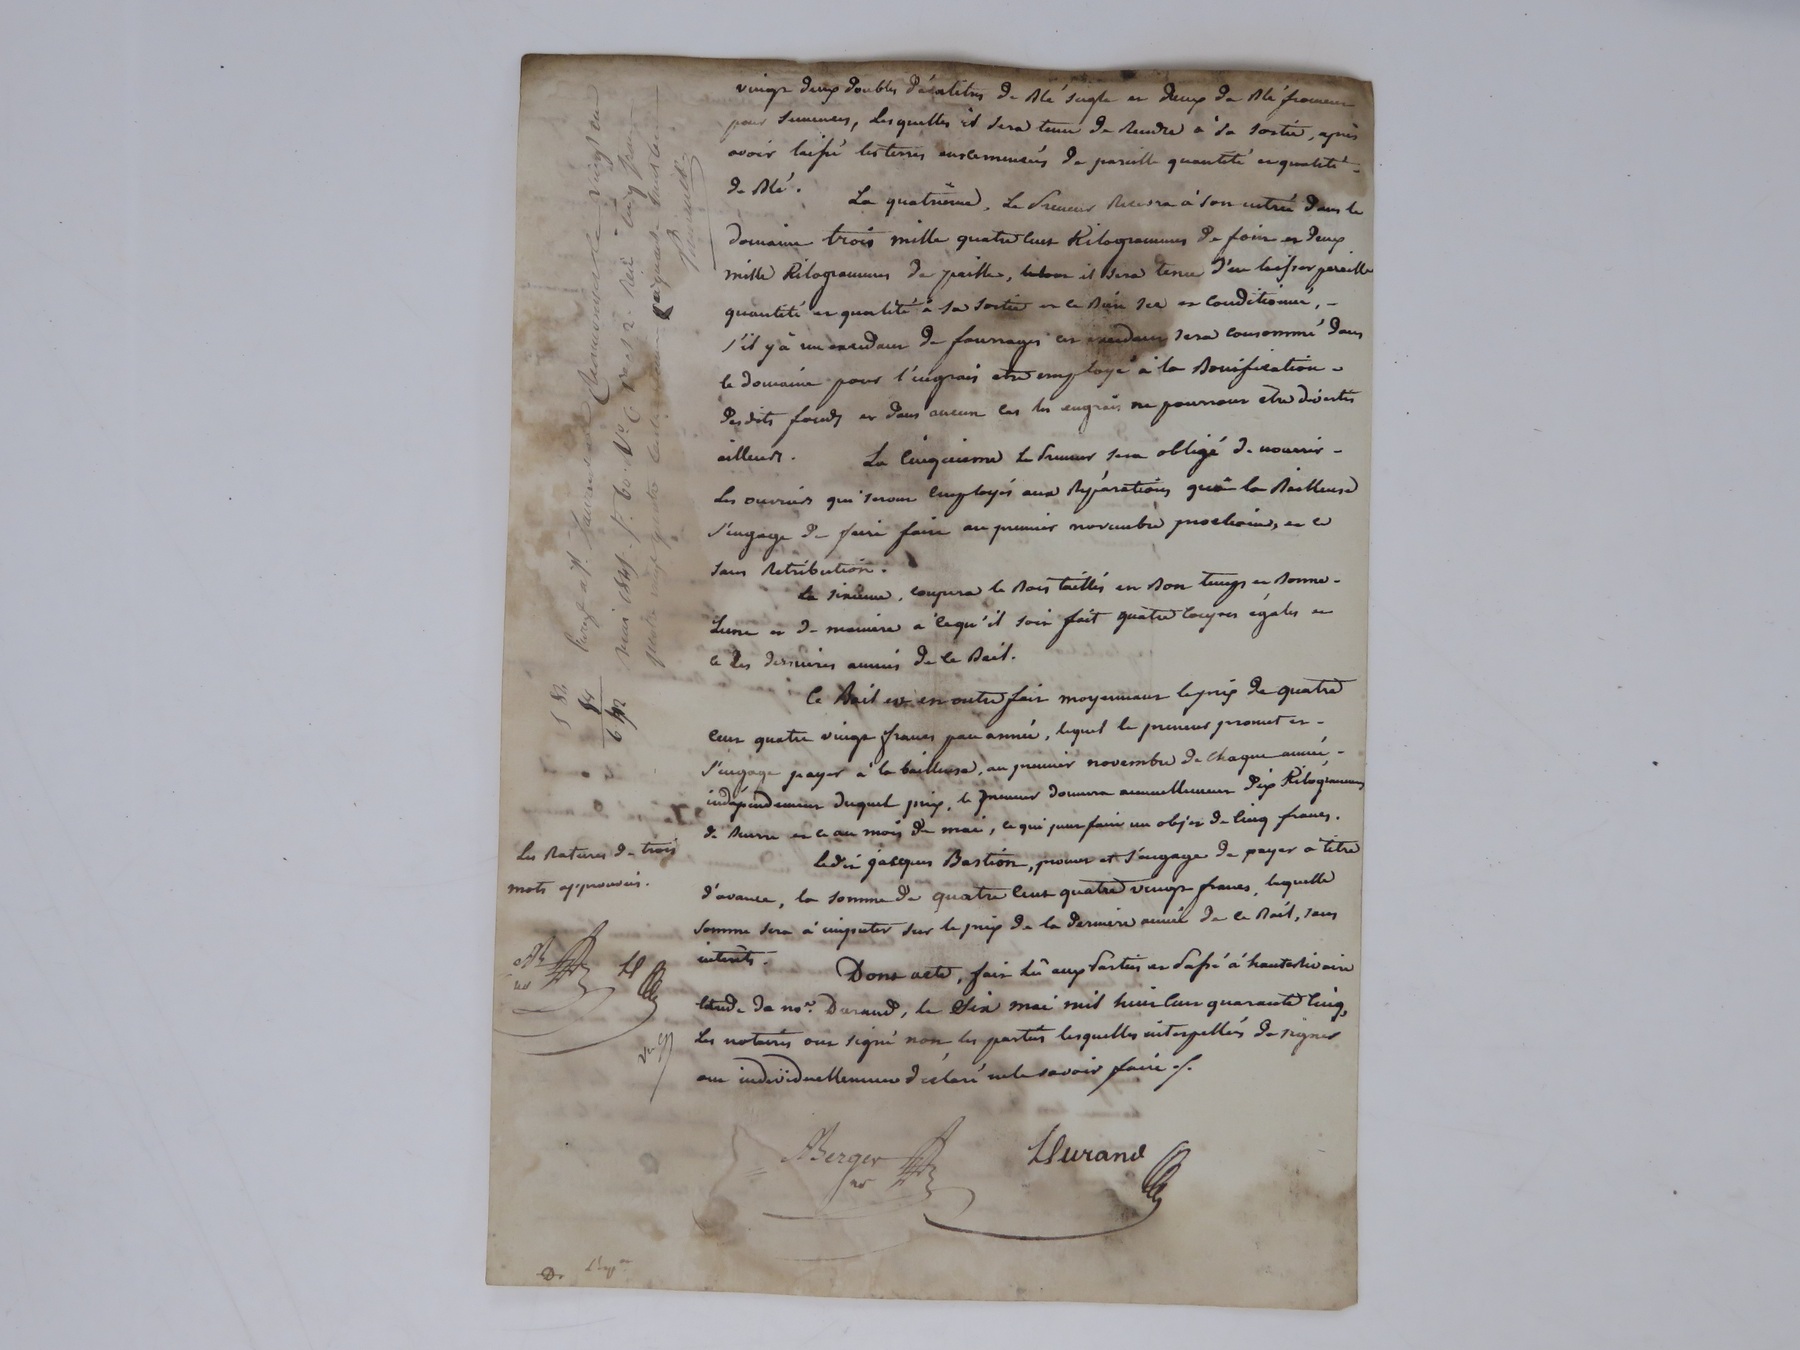 vingt deux doubles Décalitres de Blé seigle et deux de Blé froment
pour semences, lesquelles il sera tenu de Rendre à sa sortie, après
avoir laissé les terres ensemencées de pareille quantité et qualité -
de Blé.
La quatrième, Le Preneur Recevra à son entrée dans le
domaine trois mille quatre Cent Kilogrammes de foin et deux
mille Kilogrammes de paille, il sera tenu d'en laisser pareille
quantité et qualité à sa sortie et ce Bien sec et conditionné, -
s'il y à un excédant de fourrages cet excédant sera consommé dans
le domaine pour l'engrais etre employé à la Bonification -
desdits fonds et dans aucun cas les engrais ne pourront etre divertis
ailleurs.
La Cinquieme Le Preneur sera obligé de nourrir -
Les ouvriers qui seront employés aux Réparations que la Bailleuse
s'engage de faire faire au premier novembre prochain, et ce
sans Rétribution.
La sixieme, coupera le Bois taillés en Bon temps et Bonne -
Lune et de maniere à ce qu'il soit fait quatre coupes égales et
ce les dernieres années de ce Bail.
Ce Bail est en outre fait moyennant le prix de quatre
Cent quatre vingt francs par année, lequel le preneur promet et -
s'engage payer à la bailleuse, au premier novembre de chaque année -
indépendamment duquel prix, le preneur donnera annuellement Dix Kilogrammes
de Beurre et ce au mois de mai, ce qui peut faire un objet de Cinq francs.
Ledit jacques Bastion, promet et s'engage de payer à titre
d'avance, la somme de quatre Cent quatre vingt francs, laquelle
somme sera à imputer sur le prix de la derniere année de ce Bail, sans
intérêts.
Dont acte, fait Lû aux Parties et Passé à hauterivoire
Etude de me. Durand, le Six mai mil huit Cent quarante Cinq,
Les notaires ont signé non les parties lesquelles interpellées de signer
ont individuellement déclaré ne le savoir faire
Berger
Durand
Les Ratures de trois
mots approuvés.
mai 1845